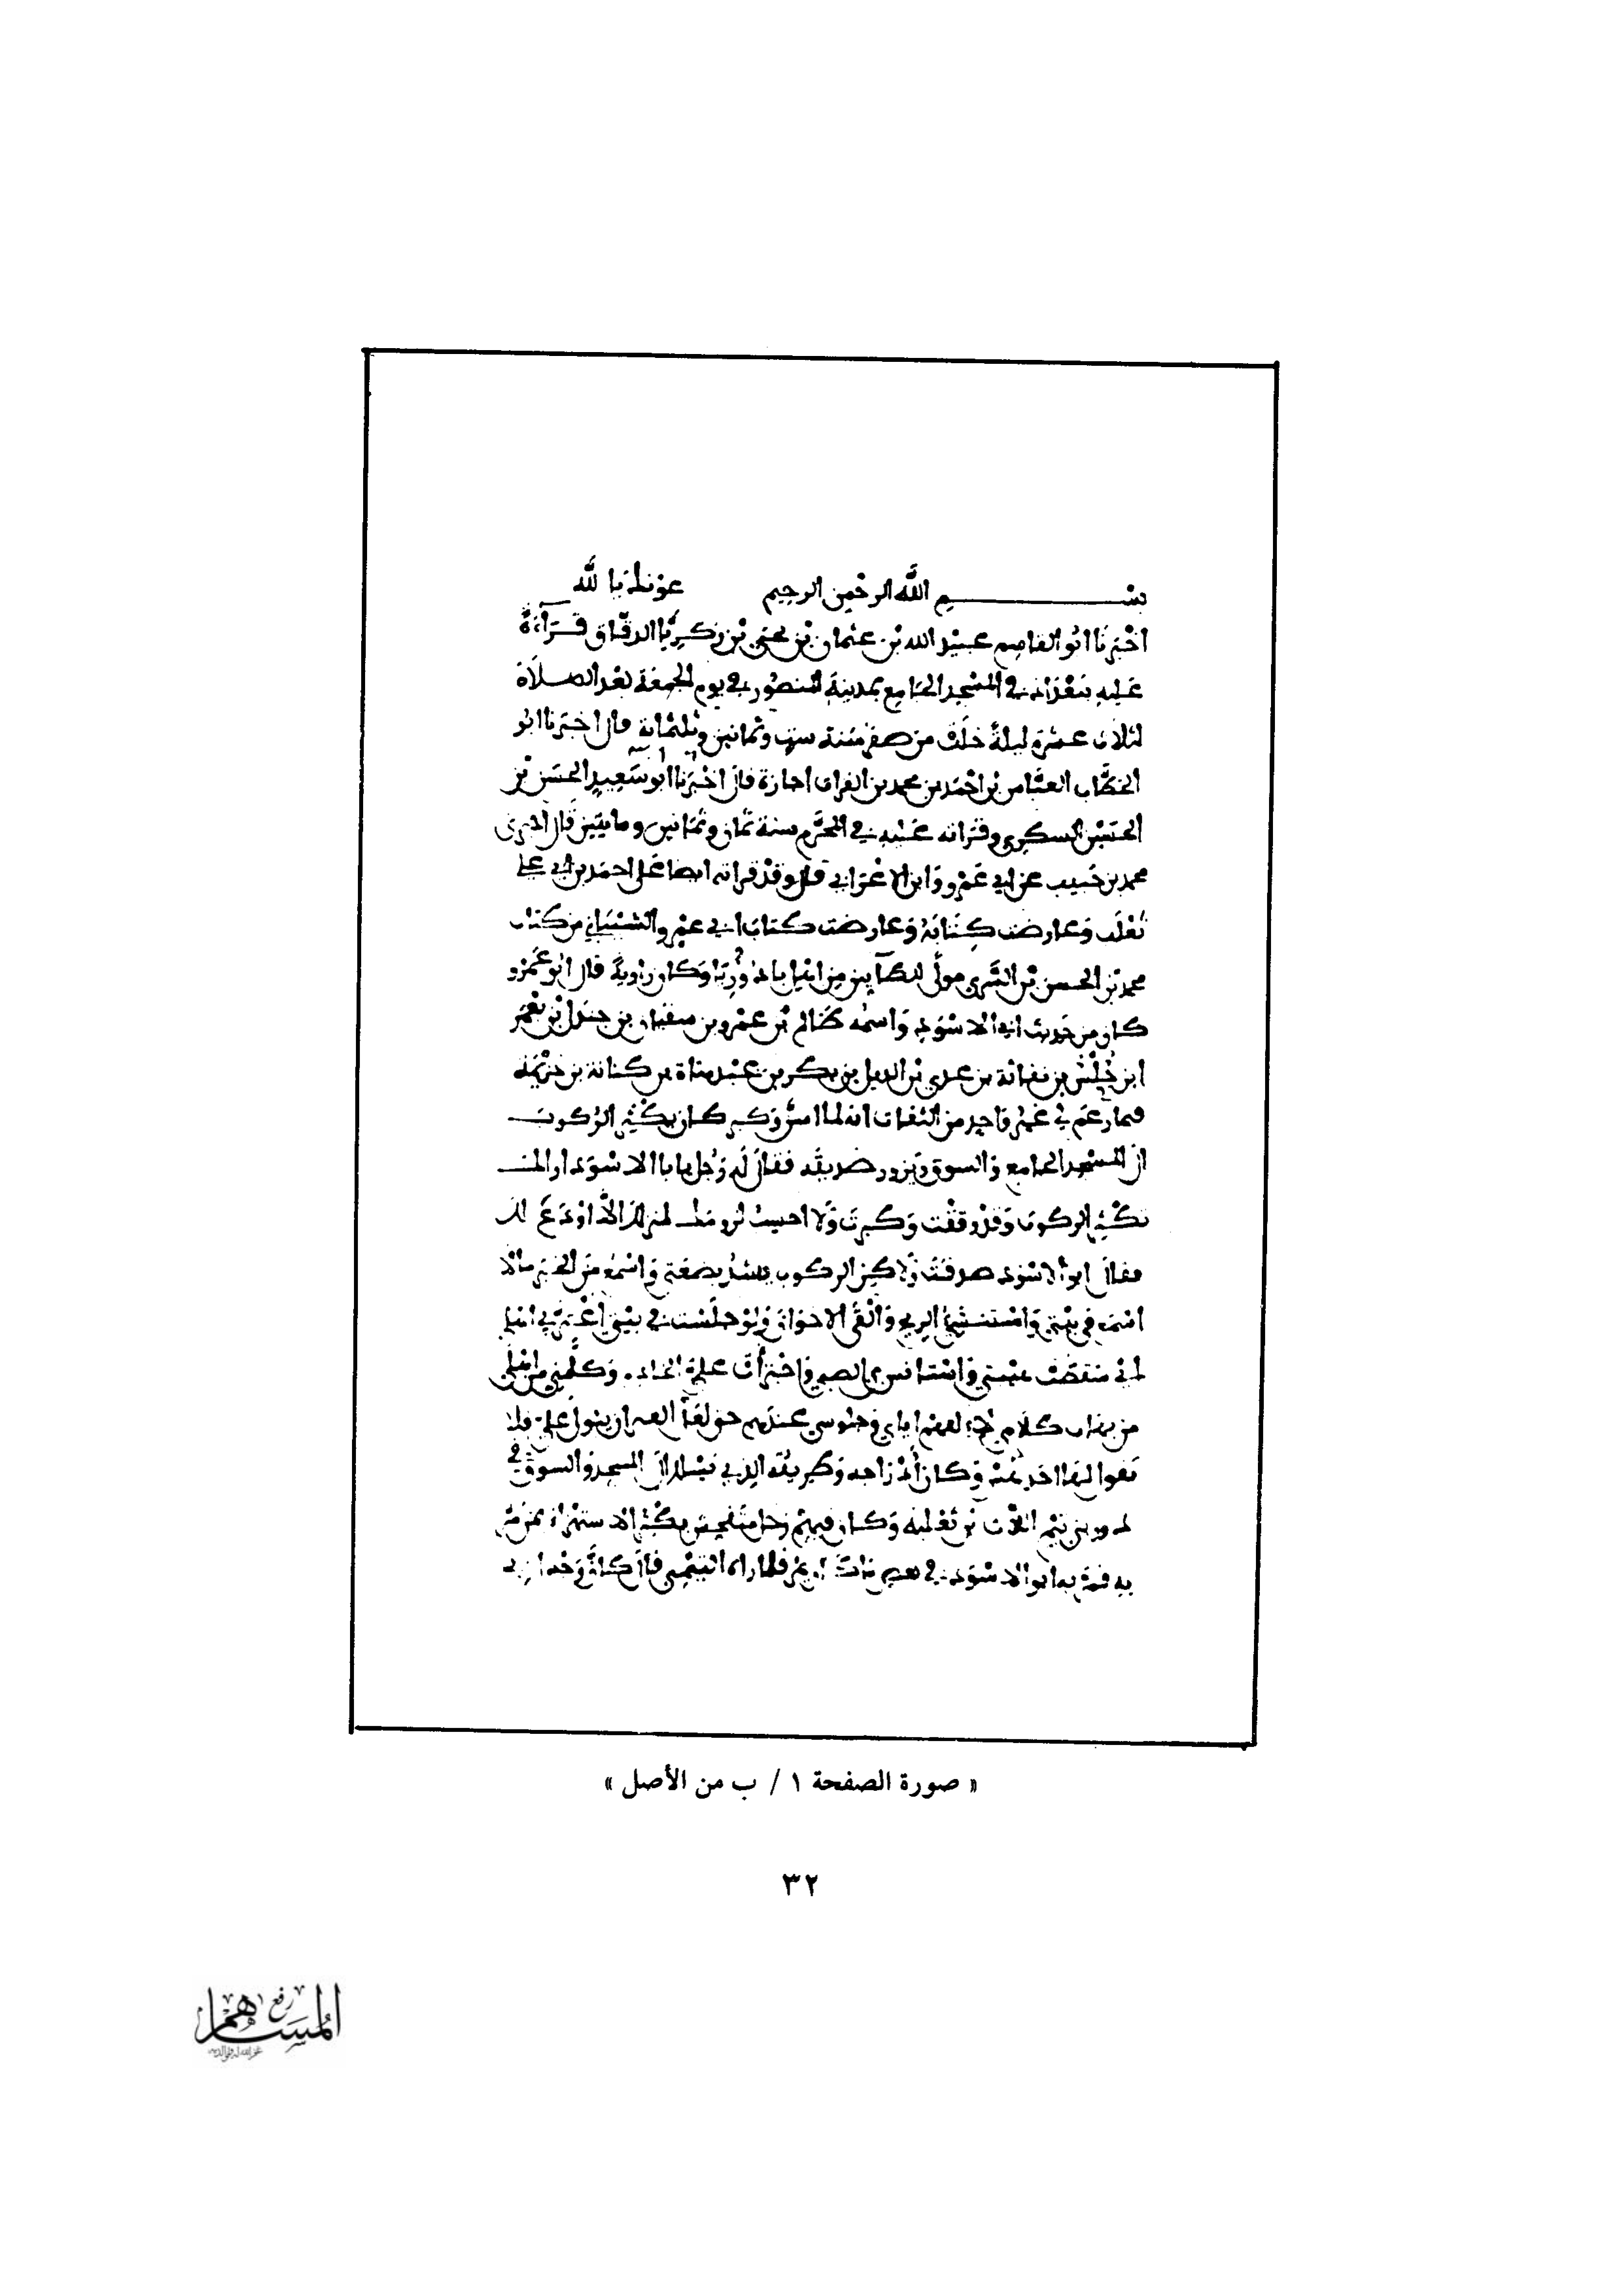 بسم الله الرحمن الرحيم عونك يا لله
اخبرنا ابو القاسم عبيد الله بن عثمان بن يحيى بن زكريا الدقاق قراءة
عليه ببغداد في المسجد الجامع بمدينة المنصور في يوم الجمعة بعد الصلاة
لثلاث عشرة ليلة خلت من صفر سنة ست وثمانين وثلثمائة قال اخبرنا ابو
الخطاب العباس بن احمد بن محمد بن الفرات اجازة قال اخبرنا ابو سعيد الحسن بن
الحسين السكري وقراته عليه في المحرم سنة ثمان وثمانين ومايتين قال اخبرني
محمد بن حبيب عن ابي عمرو وابن الاعرابي قال وقد قراته ايضا على احمد بن يحيى
ثعلب وعارضت كتابه وعارضت كتاب ابي عمرو الشيباني من كتاب
محمد بن الحسن بن السري مولى للطايين من اهل وكان راوية قال ابو عمرو
كان من حديث ابي الاسود واسمه ظالم بن عمرو بن سفيان بن جندل بن يعمر
ابن حلس بن نفاثة بن عدي بن الديل بن بكر بن عبد مناة بن كنانة بن خزيمة
فيما زعم لي غير واحد من الثقات انه لما اسن وكبر كان يكثر الركوب
الى المسجد الجامع والسوق ويزور صديقه فقال له رجل يا با الاسود اراك
تكثر الركوب وقد وكبرت ولا لو لزمت منزلك اودع لك
فقال ابو الاسود صدقت ولاكن الركوب يشد بضعتي واسمع من الخبر مالا
اسمع في بيتي واستنشي الريح والقى الاخوان ولو جلست في بيتي اغتم بي اهلي
واستانس بي الصبي واجترات علي الخادم وكلمني من اهلي
من يهاب كلامي لالفهم اياي وجلوسي عندهم حتى لعل العنز ان يبول علي فلا
يقول لها احد هش وكان اذا وطريقه الذي يسلك الى المسجد والسوق في
بني تيم اللات بن ثعلبة وكان فيهم رجل متفحش يكثر الاستهزاء بمن مر
به فمر به ابو الاسود في بعض ذلك فلما راه التيمي قال كان وجه ابي
« صورة الصفحة ١ / ب من الأصل »
٣٢
رفع
المساهم
غفر الله له ولوالديه